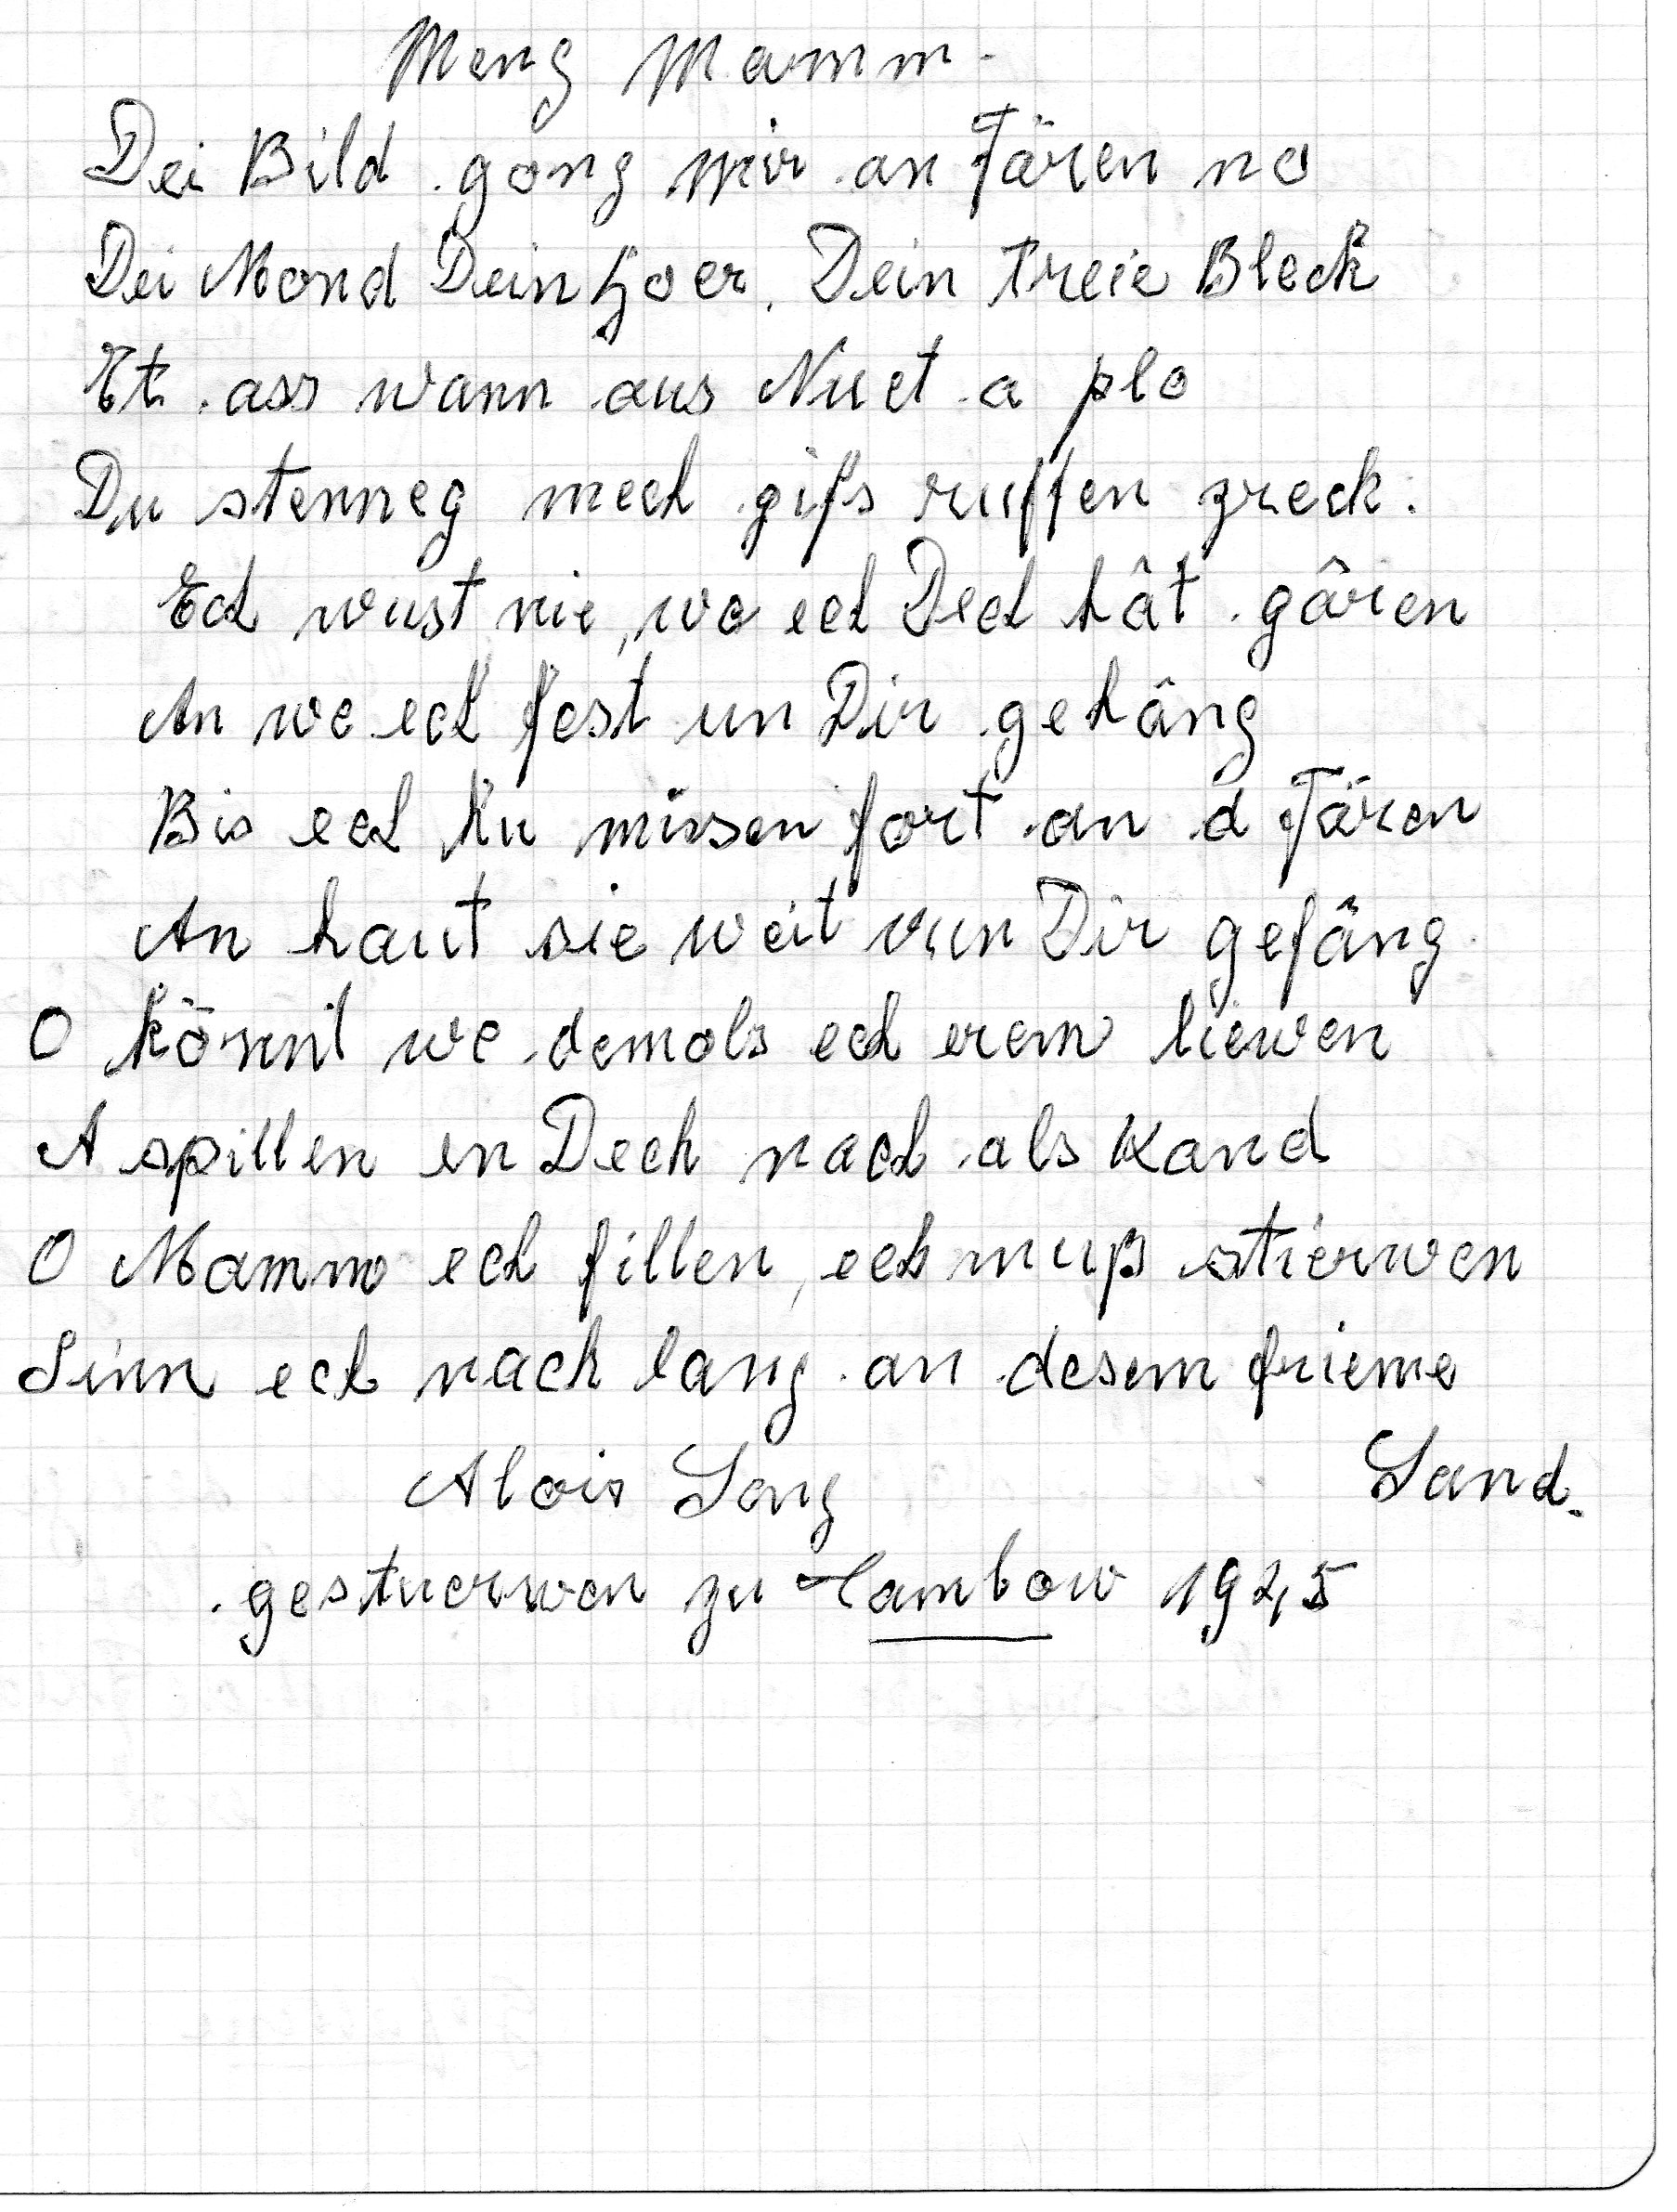 Meng Mamm.
Dei Bild gong mir an Fären no
Dei Mond Dein Hoer. Dein treie Bleck
Et ass wann aus Nuet a plo
Du stenneg mech gifs ruffen zreck.
Ech wust nie, wo ech Dech hât gâren
An we ech fest un Dir gehâng
Bis ech hu missen fort an d Fären
An haut sie weit vun Dir gefâng
O könnt we demols ech erem liewen
A spillen en Dech nach als Kand
O Mamm ech fillen, ech muß stierwen
Sinn ech nach lang an desem frieme
Alois Lang Land.
gestuerwen zu Tambow 1945